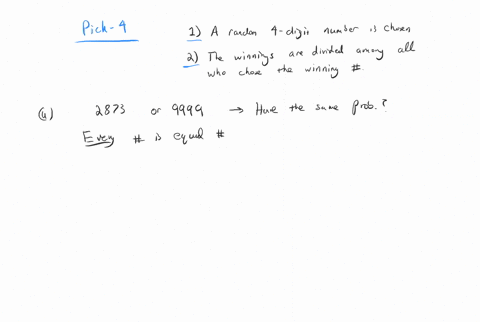 Pick-4
1) A random 4-digit number is chosen
2) The winnings are divided among all
who chose the winning #.
(a) 2873 or 9999 → Have the same prob.?
Every # is equal #